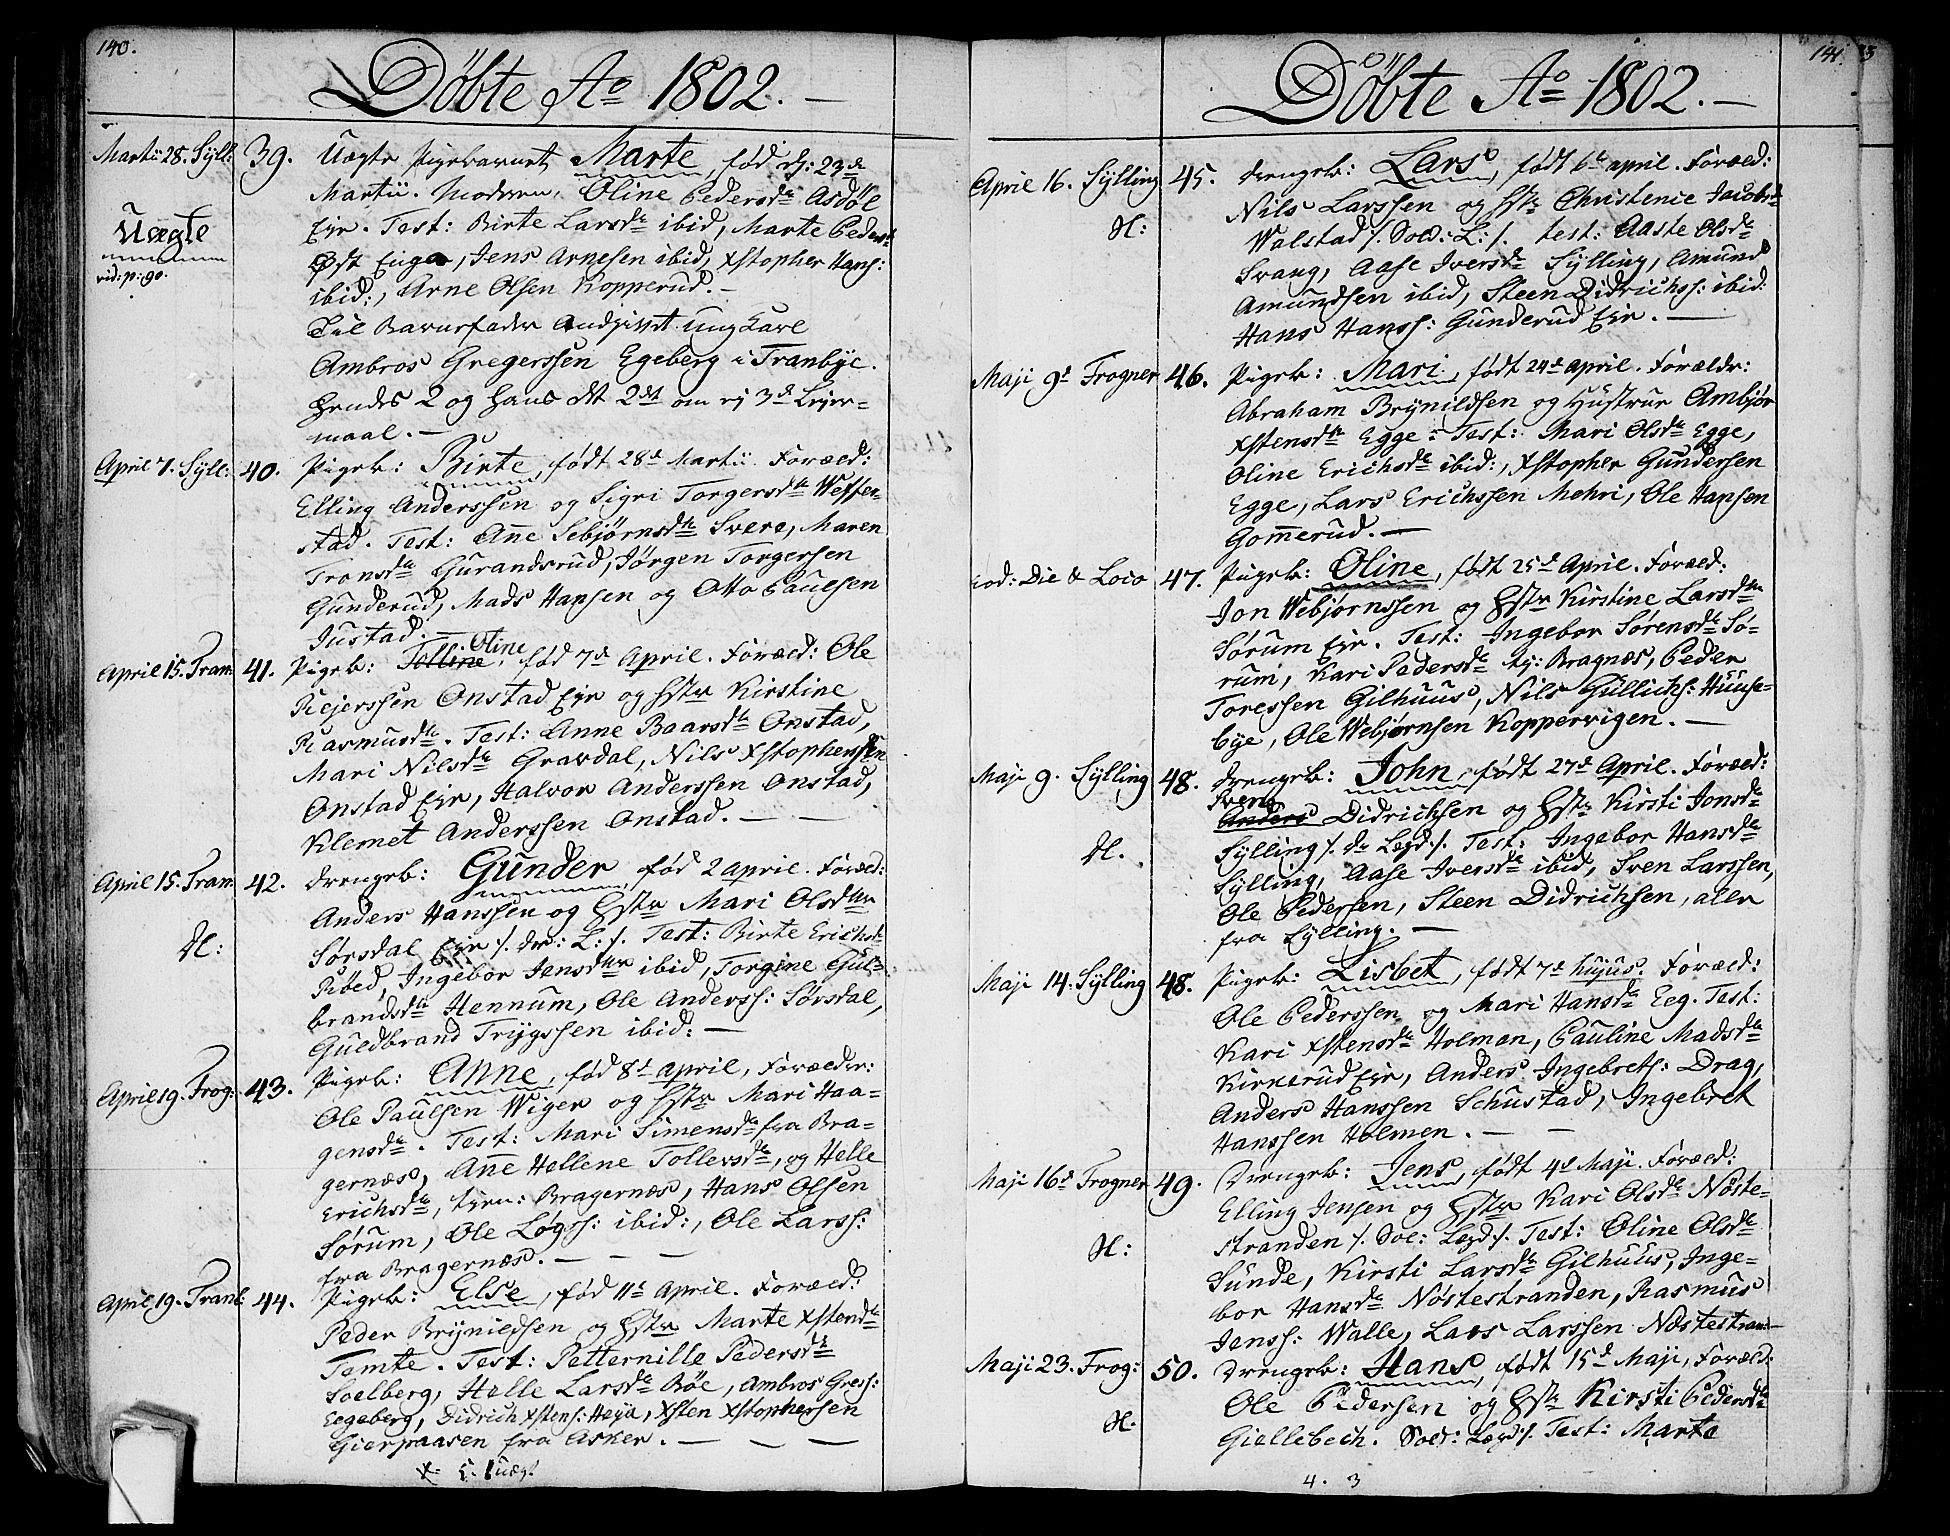 140.
Döbte Ao 1802. —
Martii 28. Sÿll: 39. Uægte Pigebarnet Marte, fød d: 23de
Martii. Moderen, Oline Pedersdtr Asdöl
Uægte
vid: p: 90.
Eje. Test: Birte Larsdtr ibid, Marte Pedersdtr
Øst Enger, Jens Arnesen ibid, Xstopher Hans:
ibid:, Arne Olsen Kopperud. —
Til Barnefader Andgivet ung Karl
Ambros Gregerssen Egeberg i Tranbÿe.
Hendes 2 og Hans det 2det om ej 3de Lejer-
maal. —
April 7. Sÿll: 40. Pigeb: Birte, født 28de Martii. Foræld:
Elling Anderssen og Sigri Torgersdtr Weffer-
stad. Test: Anne Sebjørnsdtr Svere, Maren
Tronsdtr Gurandsrud, Jörgen Torgersen
Gunderud, Mads Hansen og Otto Paulsen
Justad. —
Oline
April 15. Tran: 41. Pigeb: Tolline, fød 7de April. Foræld: Ole
Rejerssen Onstad Eje og Hstr Kirstine
Rasmusdtr. Test: Anne Baarsdtr Onstad,
Mari Nilsdtr Gravdal, Nils Xstophersen
Onstad Eje, Halvor Anderssen Onstad,
Klemet Anderssen Onstad. — —
April 15. Tran: 42. Drengeb: Gunder, fød 2 april. Foræld:
Anders Hanssen og Hstr Mari Olsdtr
H:
Sørsdal Eje /. dr: L: /. Test: Birte Erichsdtr
Röed, Ingebor Jensdtr ibid, Torgine Gul-
brandsdtr Hennum, Ole Anderss: Sørsdal,
Guldbrand Trÿgssen ibid: —
April 19. Frog: 43. Pigeb: Anne, fød 8de april, Forælder:
Ole Paulsen Wiger og Hstr Mari Haa-
gensdtr. Test: Mari Simensdtr fra Bra-
gernæs, Anne Hellene Tollevsdtr, og Helle
Erichsdtr, tjen: Bragernæs, Hans Olsen
Sørum, Ole Løgss: ibid:, Ole Larss:
fra Bragernæs. — —
April 19. Tranb: 44. Pigeb: Else, fød 11te April. Foræld:
Peder Brÿnildsen og Hstr Marte Xstensdtr
Temte. Test: Petternille Pedersdtr
Soelberg, Helle Larsdtr Böe, Ambros Gress:
Eegeberg, Didrich Xstens: Heÿa, Xsten Xstophersen
Gierpaasen fra Asker. — — —
141.
Döbte Ao 1802. —
April 16. Sÿlling 45. Drengeb: Lars, født 6te april. Foræld:
Nils Larssen og Hstr Christence Jacobsdtr
H:
Walstad /. Sold: L: /. Test: Aaste Olsdtr
Svang, Aase Iversdtr Sÿlling, Amund
Amundsen ibid, Steen Didrichss: ibid:
Hans Hanss: Gunderud Eje. —
Maji 9de Frogner 46. Pigeb: Mari, født 24de april. Forælder:
Abraham Brÿnildsen og Hustrue Ambjør
Xstensdtr Egge. Test: Mari Olsdtr Egge,
Oline Erichsdtr ibid:, Xstopher Gundersen
Egge, Lars Erichssen Mohri, Ole Hansen
Gommerud. —
eod: Die & Loco 47. Pigeb: Oline, født 25de April. Foræld:
Jon Webjørnssen og Hstr Kirstine Larsdtr
Sørum Eje. Test: Ingebor Sørensdtr Sø-
rum, Kari Pedersdtr tj: Bragnæs, Peder
Toressen Gilhuus, Nils Gullichs: Huuse-
bÿe, Ole Webjørnsen Koppervigen. —
Maji 9. Sÿlling 48. Drengeb: John, født 27de April. Foræld:
Svend
Anders Didrichsen og Hstr Kirsti Jonsdtr
H.
Sÿlling /. dr Legd /. Test: Ingebor Hansdtr
Sÿlling, Aase Iversdtr ibid, Sven Larssen,
Ole Pedersen, Steen Didrichsen, alle
fra Sÿlling. —
Maji 14. Sÿlling 48. Pigeb: Lisbet, født 7de hujus. Foræld:
Ole Pederssen og Mari Hansdtr Eeg. Test:
Kari Xstensdtr Holman, Pauline Madsdtr
Kirkerud Eje, Anders Ingebretss: Drag,
Anders Hanssen Schustad, Ingebret
Hanssen Holmen. — —
Maji 16de Frogner 49. Drengeb: Jens, født 4de Maji. Foræld:
Elling Jensen og Hstr Kari Olsdtr Nöste-
H:
stranden /. Sol: Legd /. Test: Oline Olsdtr
Sunde, Kirsti Larsdtr Gilhuus, Inge-
bor Hansdtr Nöstestranden, Rasmus
Jenss: Walle, Lars Larssen Næstestran—
Maji 23. Frog: 50. Drengeb: Hans, født 15de Maji, Foræld:
Ole Pedersen og Hstr Kirsti Pedersdtr
H.
Giellebech. Sold: Legd /. Test: Marte
4. 3